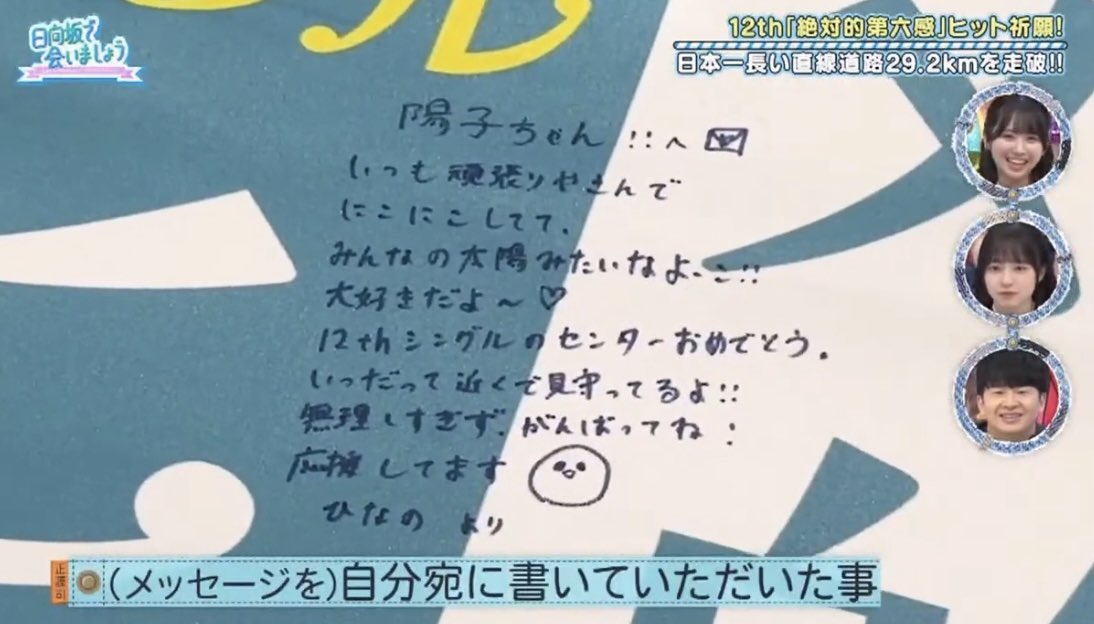 日向坂で
会いましょう
12th「絶対的第六感」ヒット祈願!
日本一長い直線道路29.2kmを走破!!
陽子ちゃん!!へ
いつも頑張りやさんで
にこにこしてて、
みんなの太陽みたいなよーこ!!
大好きだよ〜♡
12thシングルのセンターおめでとう。
いつだって近くで見守ってるよ!!
無理しすぎず、がんばってね!
応援してます
ひなの より
正源司
(メッセージを)自分宛に書いていただいた事